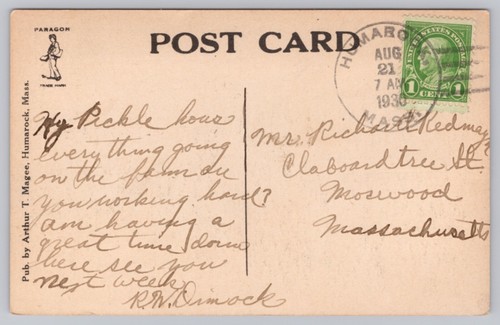 PARAGON
TRADE MARK
POST CARD
HUMAROCK
AUG
21
7 AM
1930
MASS.
UNITED STATES POSTAGE
1 CENT 1
Pub. by Arthur T. Magee, Humarock, Mass.
Hy Pickle hows
everything going
on the farm are
you working hard?
am having a
great time down
here see you
next week
R.W. Dimock
Mr. Richard Redmayne
Claboardtree St.
Moswood
Massachusetts